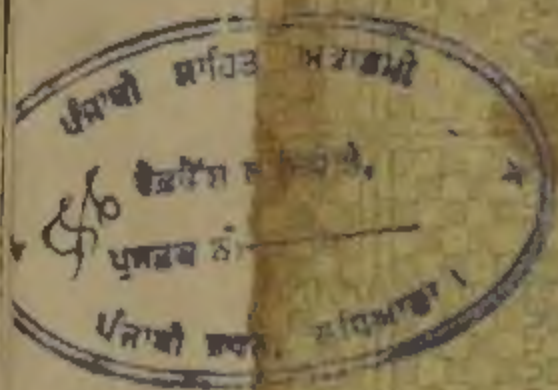 ਪੰਜਾਬੀ ਸਾਹਿਤ ਅਕਾਡਮੀ
ਰੈਫ਼ਰੈਂਸ
ਪੁਸਤਕ ਨੰ
ਪੰਜਾਬੀ ਭਵਨ, ਲੁਧਿਆਣਾ ।